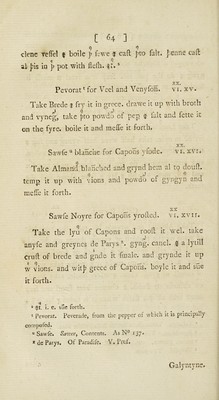 [ 64 ]
clene vessel & boile þ̉ sewe & cast þto salt. þenne cast
al þis in þ̉ pot with flesh. &ľ. s
Pevorat t for Veel and Venysoñ. XX VI. XV.
Take Brede & fry it in grece. drawe it up with broth
and vyneg̉, take þto powdo͛ of pep & salt and sette it
on the fyre. boile it and messe it forth.
Sawse u blañche for Capoñs ysode. XX VI. XVI.
Take Almand̉ blañched and grynd hem al to doust.
temp it up with verious and powdo͛ of gyngyñ and
messe it forth.
Sawse Noyre for Capoñs yrosted. XX VI. XVII.
Take the lyu̾ of Capons and roost it wel. take
anyse and greynes de Parys x. gyng̉. canel. & a lytill
crust of brede and g̾nde it smale. and grynde it up
w̾ verious. and witþ grece of Capoñs. boyle it and s̾ue
it forth.
s &ľ. i. e. s̾ue forth.
t Pevorat. Peverade, from the pepper of which it is principally
composed.
u Sawse. Sawce, Contents. As No 137.
x de Parys. Of Paradise. V. Pref.
Galyntyne.